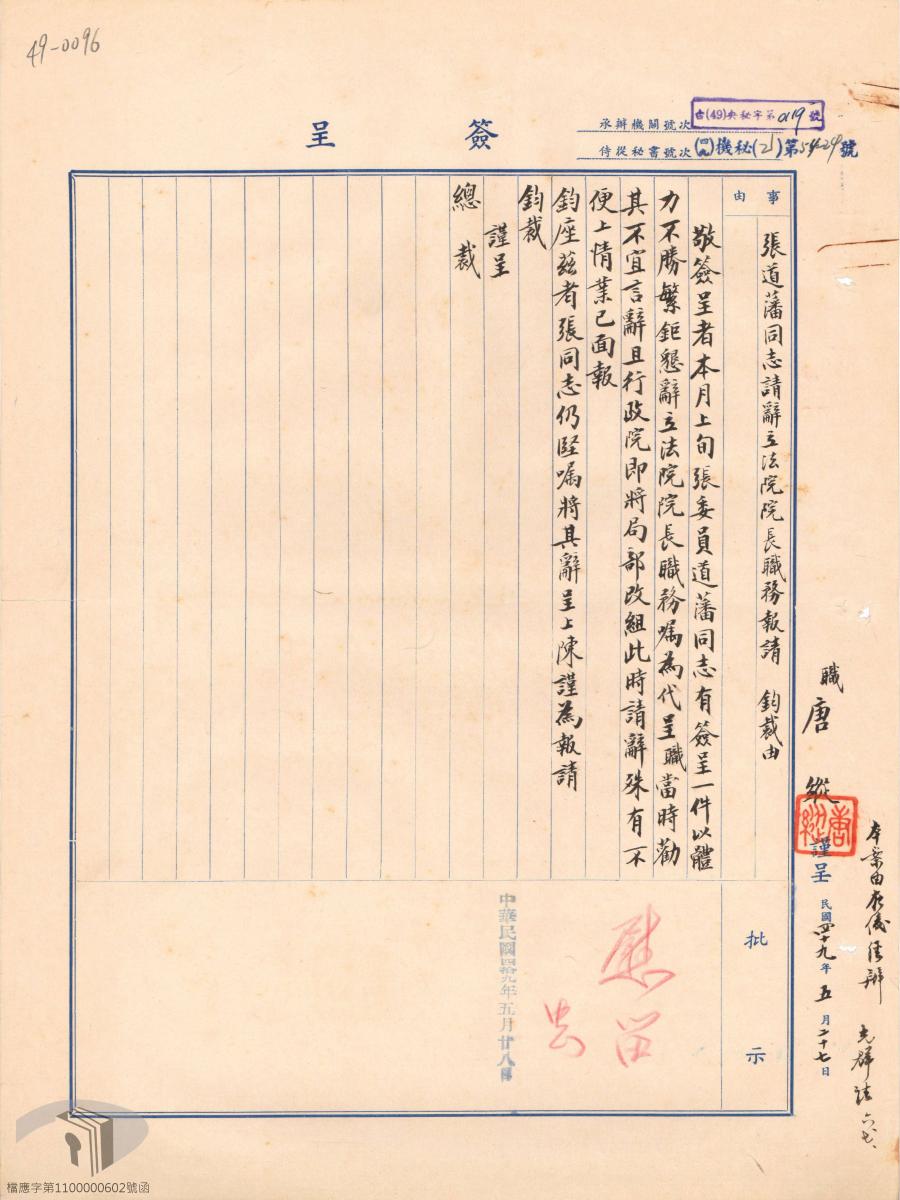 49-0096
簽呈
承辦機關號次
台(49)央秘字第0119號
侍從秘書號次(四九)機秘(乙)第54-24號
事由
張道藩同志請辭立法院院長職務報請　鈞裁由
敬簽呈者本月上旬張委員道藩同志有簽呈一件以體
力不勝繁鉅懇辭立法院院長職務囑為代呈職當時勸
其不宜言辭且行政院即將局部改組此時請辭殊有不
便上情業已面報
鈞座茲者張同志仍堅囑將其辭呈上陳謹為報請
鈞裁
謹呈
總裁
職唐縱謹呈
唐縱
民國四十九年五月二十七日
批示
慰留
中華民國四拾九年五月廿八日
檔應字第1100000602號函